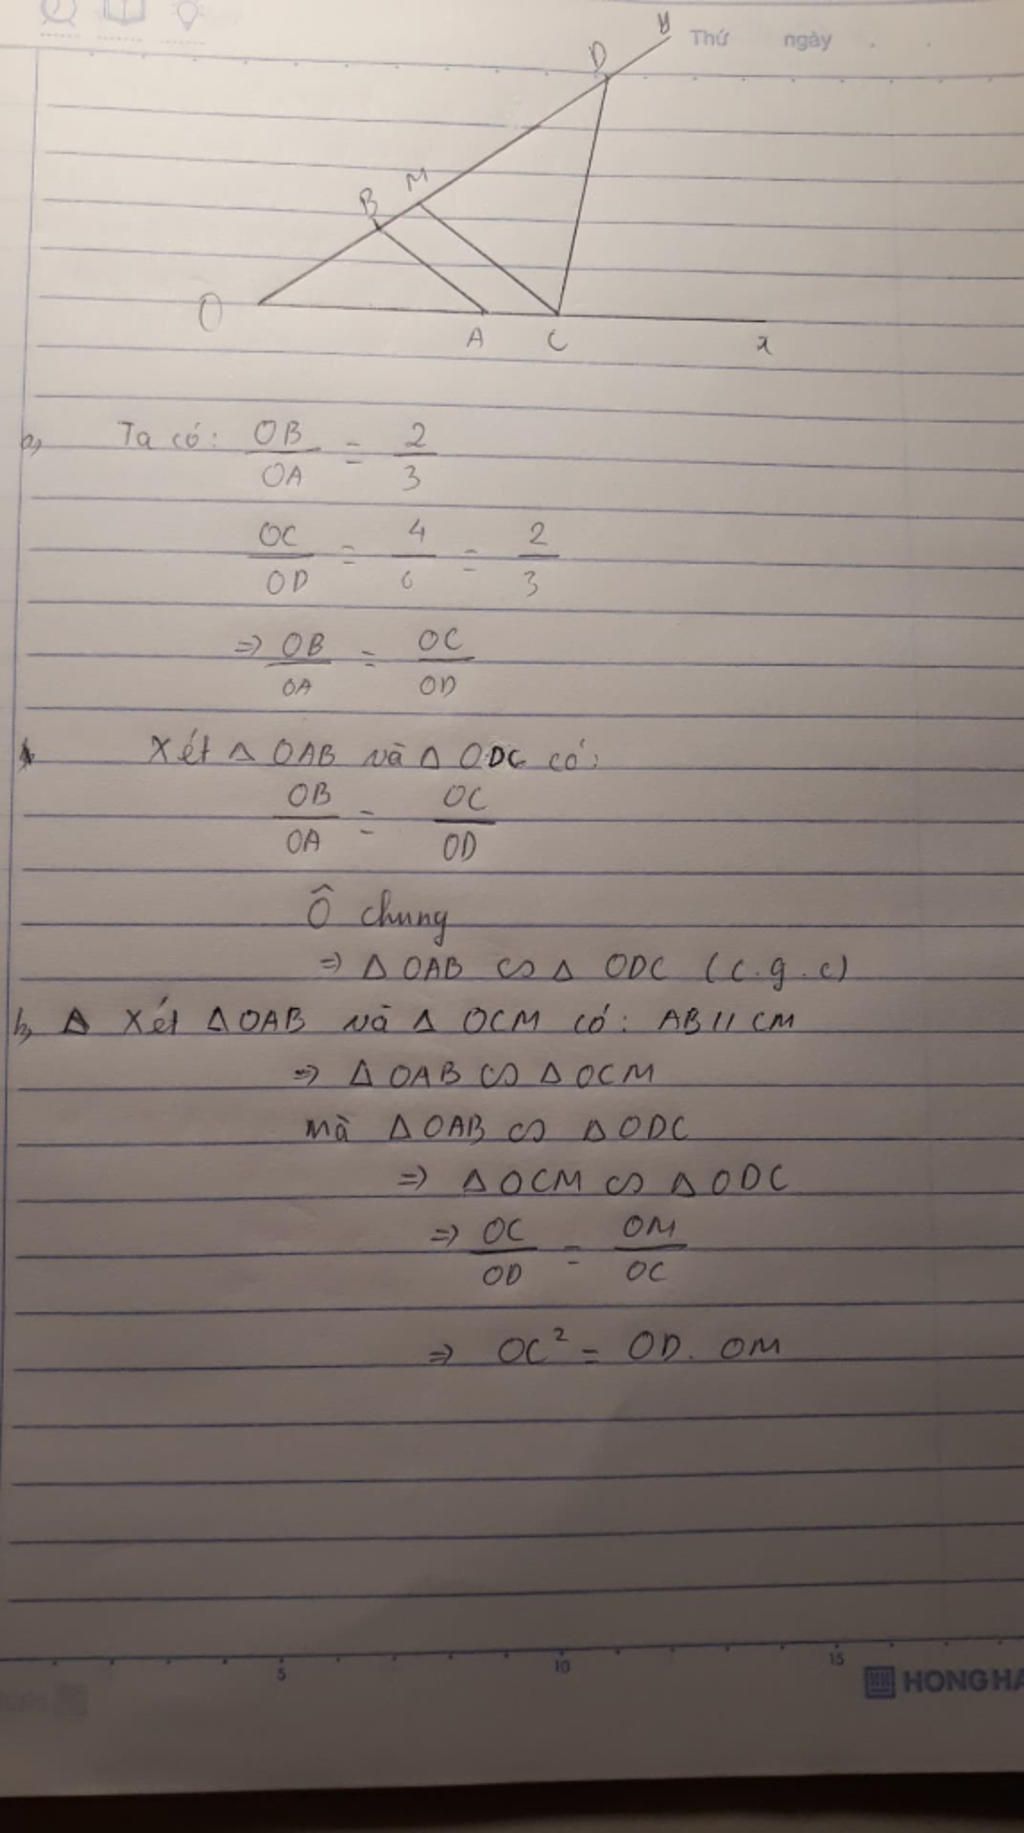 Thứ ngày
y
D
M
B
O
A C x
a, Ta có: OB/OA = 2/3
OC/OD = 4/6 = 2/3
=> OB/OA = OC/OD
Xét Δ OAB và Δ ODC có:
OB/OA = OC/OD
Ô chung
=> Δ OAB ∽ Δ ODC (c.g.c)
b, Δ Xét ΔOAB và Δ OCM có: AB // CM
=> Δ OAB ∽ Δ OCM
mà Δ OAB ∽ Δ ODC
=> Δ OCM ∽ Δ ODC
=> OC/OD = OM/OC
=> OC² = OD. OM
5 10 15
HONG HA